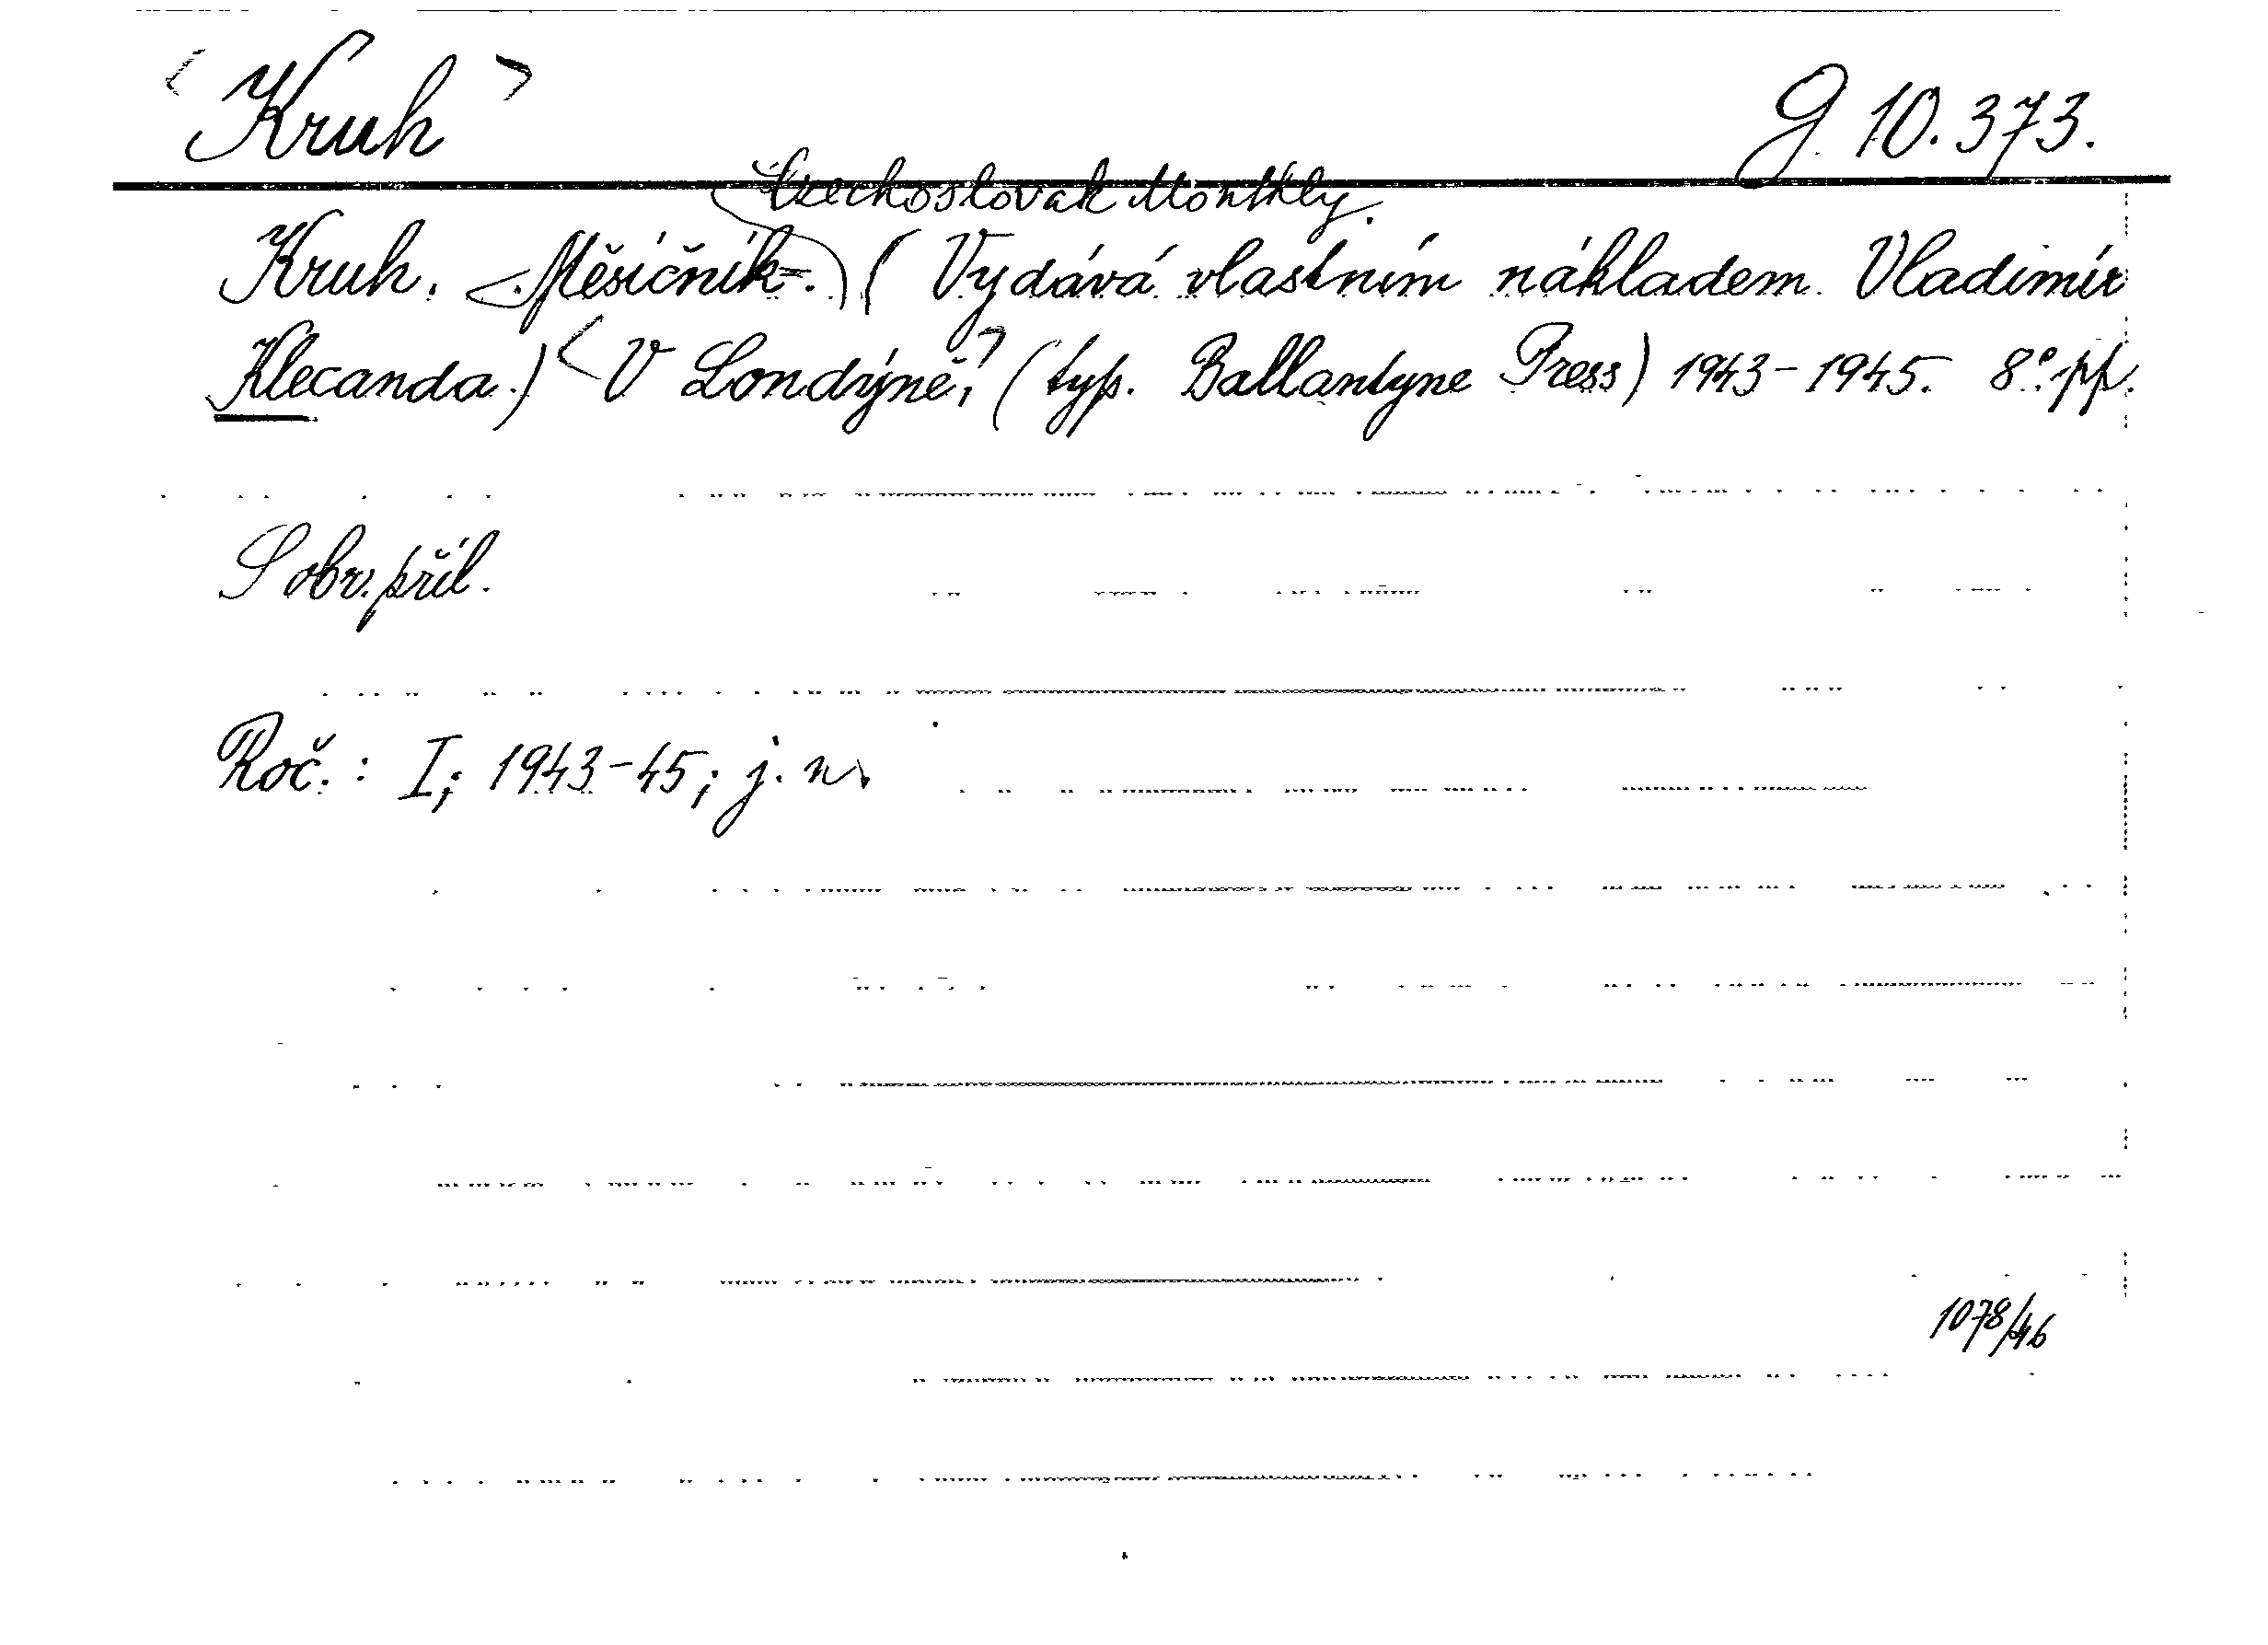 < Kruh > G 10.373.
Czechoslovak Monthly.
Kruh. < Měsíčník = . ) ( Vydává vlastním nákladem Vladimír
Klecanda.) < V Londýně, > (typ. Ballantyne Press) 1943-1945. 8° pp.
S obr. příl.
Roč.: I; 1943-45; j. n.
1078/46